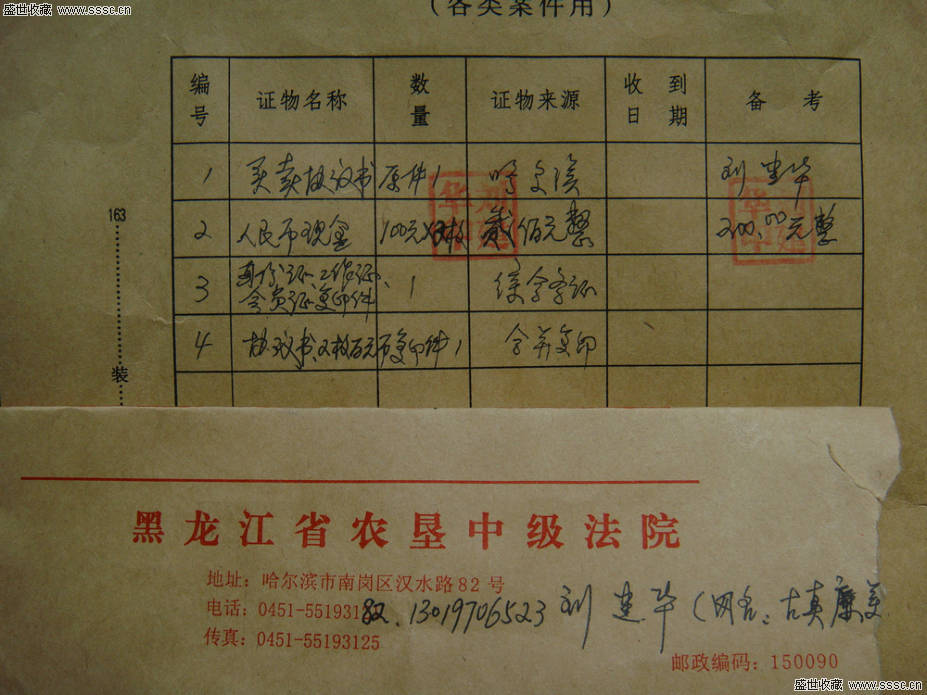 盛世收藏 www.sssc.cn 盛世收藏 www.sssc.cn
（各类案件用）
编号 证物名称 数量 证物来源 收到日期 备考
1 买卖协议书 原件1 刘建华
2 人民币现金 100元×2枚 贰佰元整 200.00元整
3 身份证、工作证、 1
会员证复印件
4 协议书、2枚百元币复印件1 复印
163
装
黑龙江省农垦中级法院
地址：哈尔滨市南岗区汉水路82号
电话：0451-551931 13019706523 刘建华（网名：古真
传真：0451-55193125
邮政编码：150090
盛世收藏 www.sssc.cn 盛世收藏 www.sssc.cn